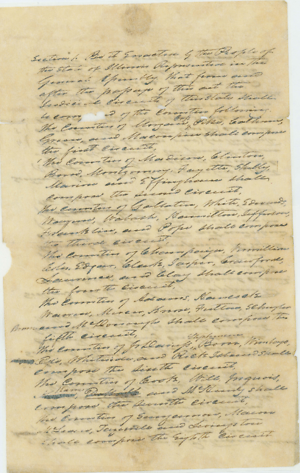 Section 1. Be it Enacted by the People of
the State of Illinois Represented in the
General Assembly That from and
after the passage of this act the
Judicial Circuits of this State shall
be composed of the Counties following
The Counties of Morgan, Pike, Calhoun,
Greene, and Macoupin shall compose
the first circuit,
The Counties of Madison, Clinton,
Bond, Montgomery, Fayette, Shelby,
Marion and Effingham shall
compose the second circuit,
The Counties of Gallatin, White, Edward,
Wayne, Wabash, Hamilton, Jefferson,
Franklin, and Pope shall compose
the third circuit,
The Counties of Champaign, Vermilion
Coles, Edgar, Clark, Jasper, Crawford,
Lawrence and Clay shall compose
the fourth circuit,
The Counties of Adams, Hancock
Warren, Mercer, Knox, Fulton, Schuyler
and McDonough shall compose the
fifth circuit,
The Counties of Jo Daviess, Winnebago,
and Rock Island shall
compose the sixth circuit,
The Counties of Cook, Will, Iroquois,
and McHenry shall
compose the seventh circuit,
The Counties of Sangamon, Macon
McLean, Tazewell and Livingston
shall compose the eighth circuit